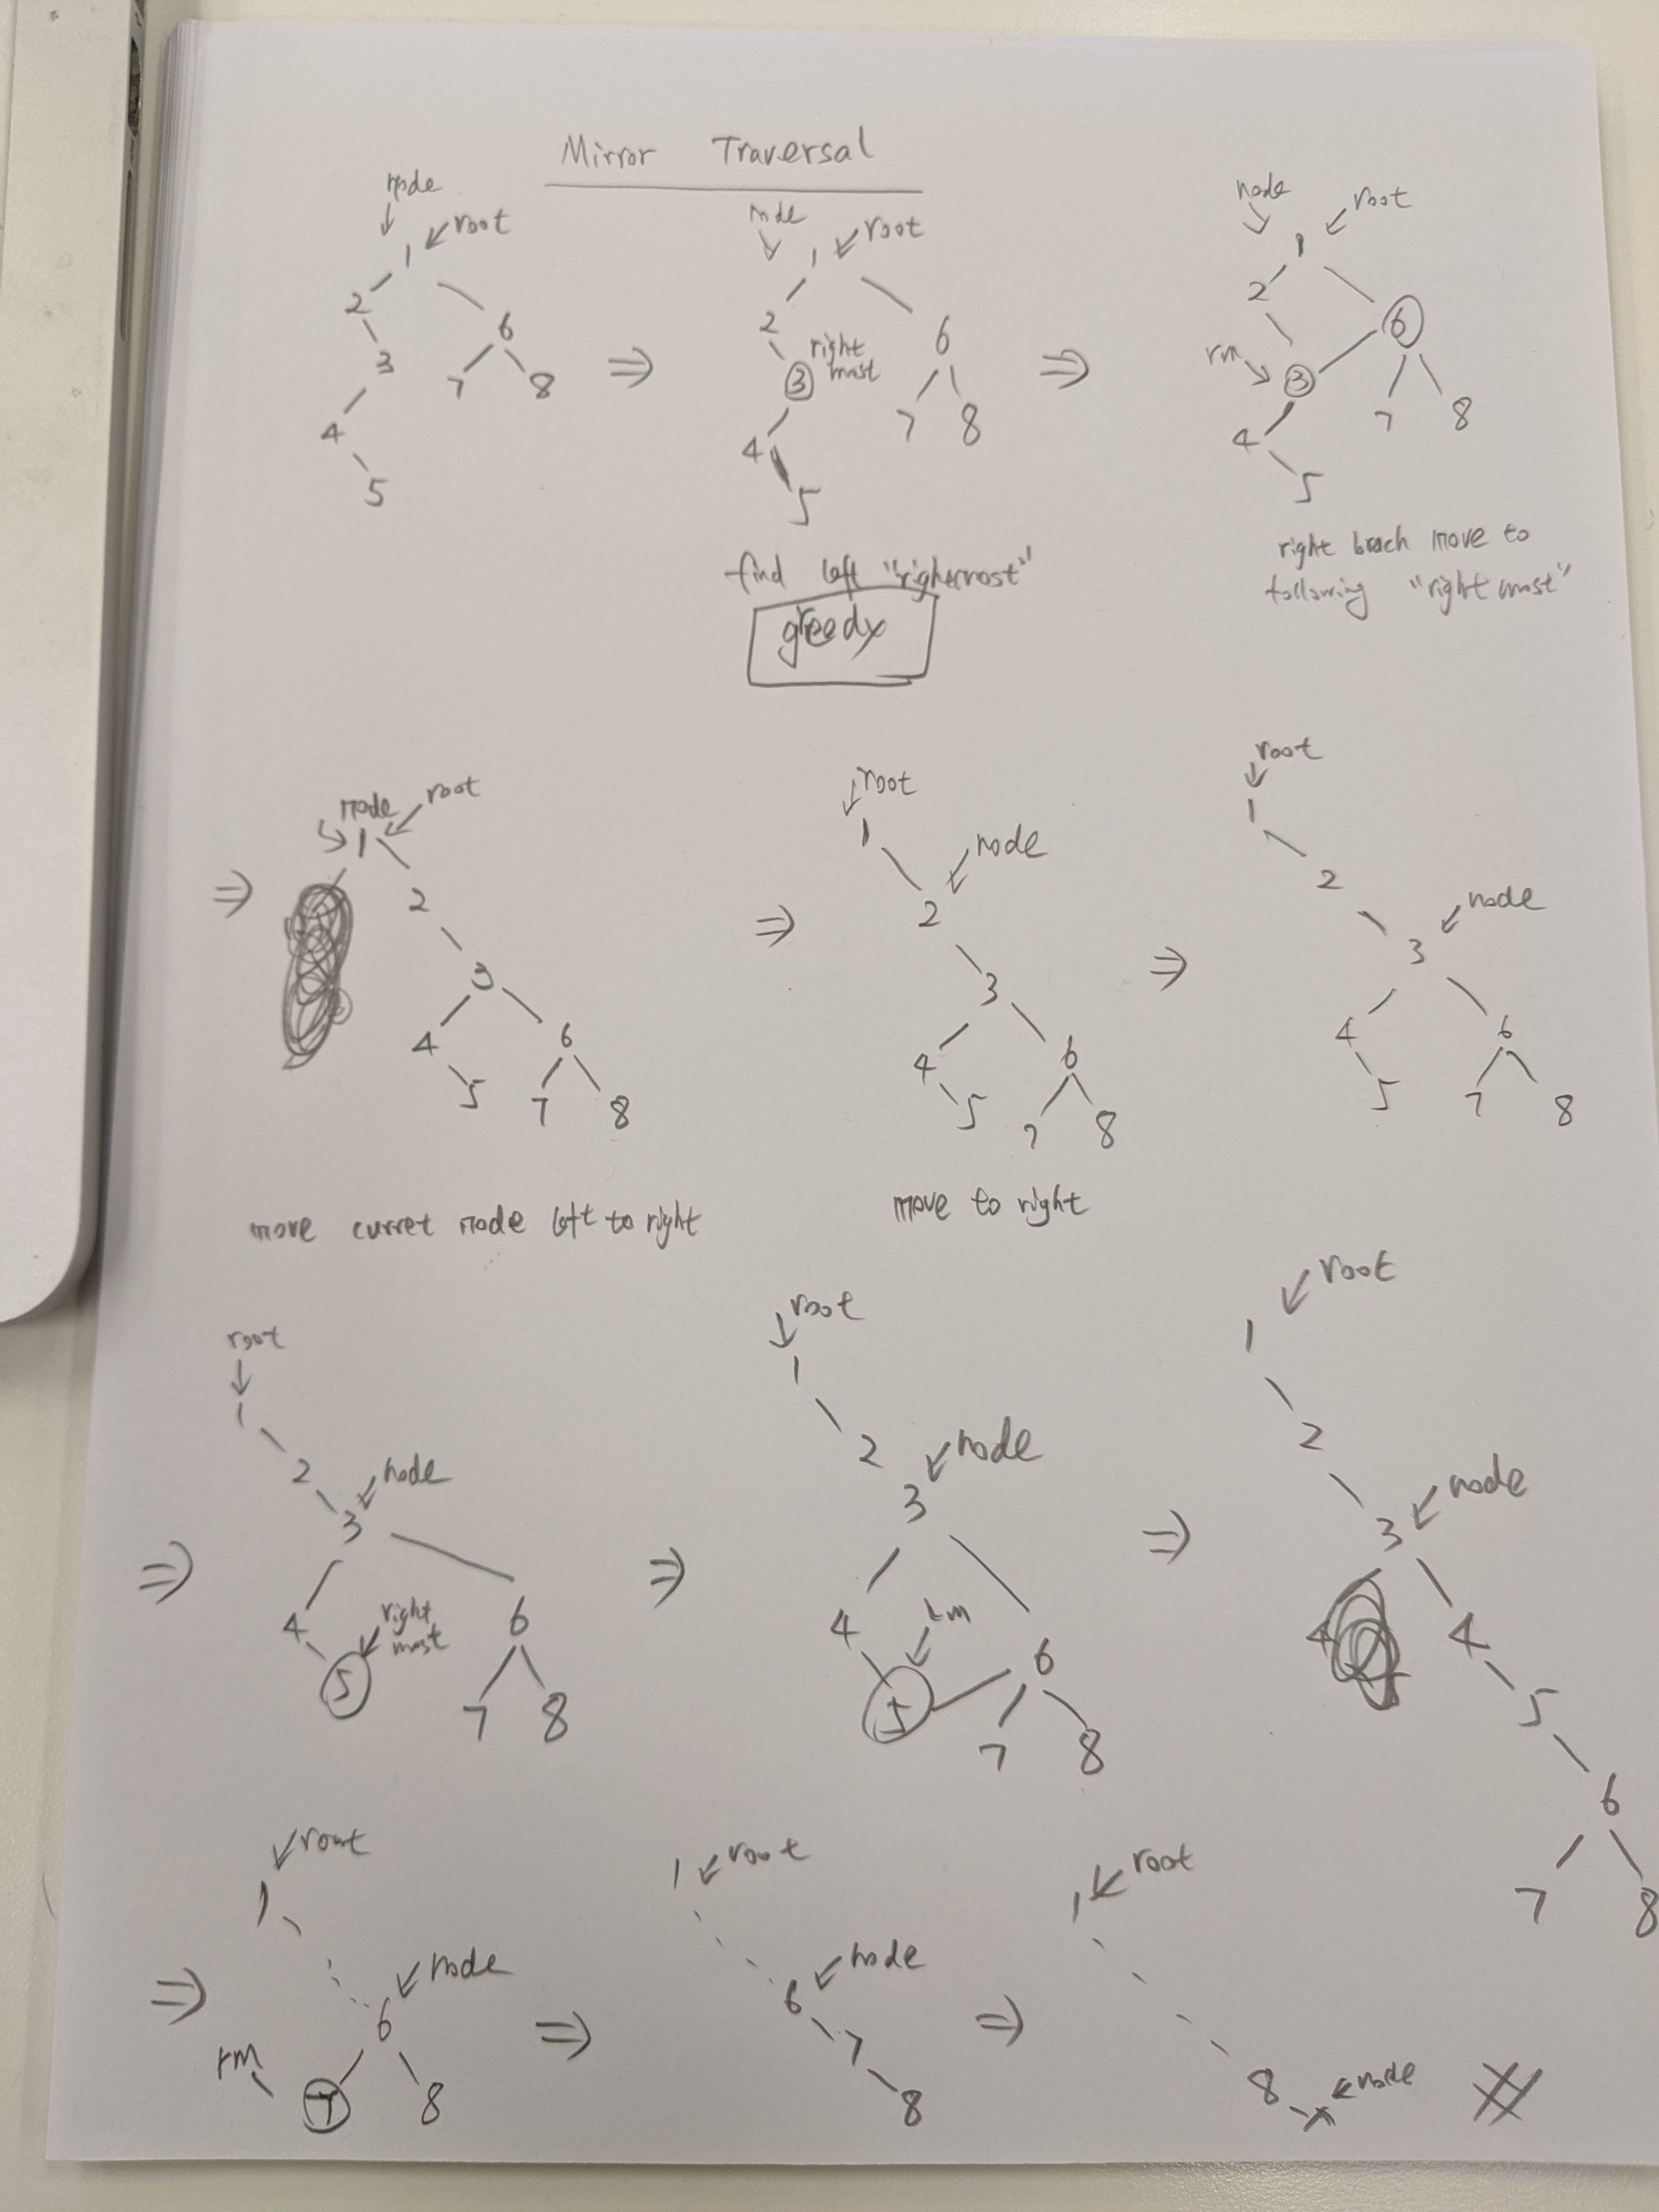 Mirror Traversal
node
root
1
2
6
3
7 8
4
5
⇒
node
root
1
2
6
right
most
3
7 8
4
5
find left "rightmost"
greedy
⇒
node
root
1
2
6
rm
3
7 8
4
5
right brach move to
following "right most"
⇒
node
root
1
2
3
4
6
5
7
8
move curret node left to right
⇒
root
1
node
2
3
4
6
5
7
8
move to right
⇒
root
1
2
node
3
4
6
5
7
8
⇒
root
1
2
node
3
4
right
most
6
5
7
8
⇒
root
1
2
node
3
4
rm
6
5
7
8
⇒
root
1
2
node
3
4
4
5
6
7
8
⇒
root
1
node
6
rm
7
8
⇒
1
root
node
6
7
8
⇒
root
1
8
node
#